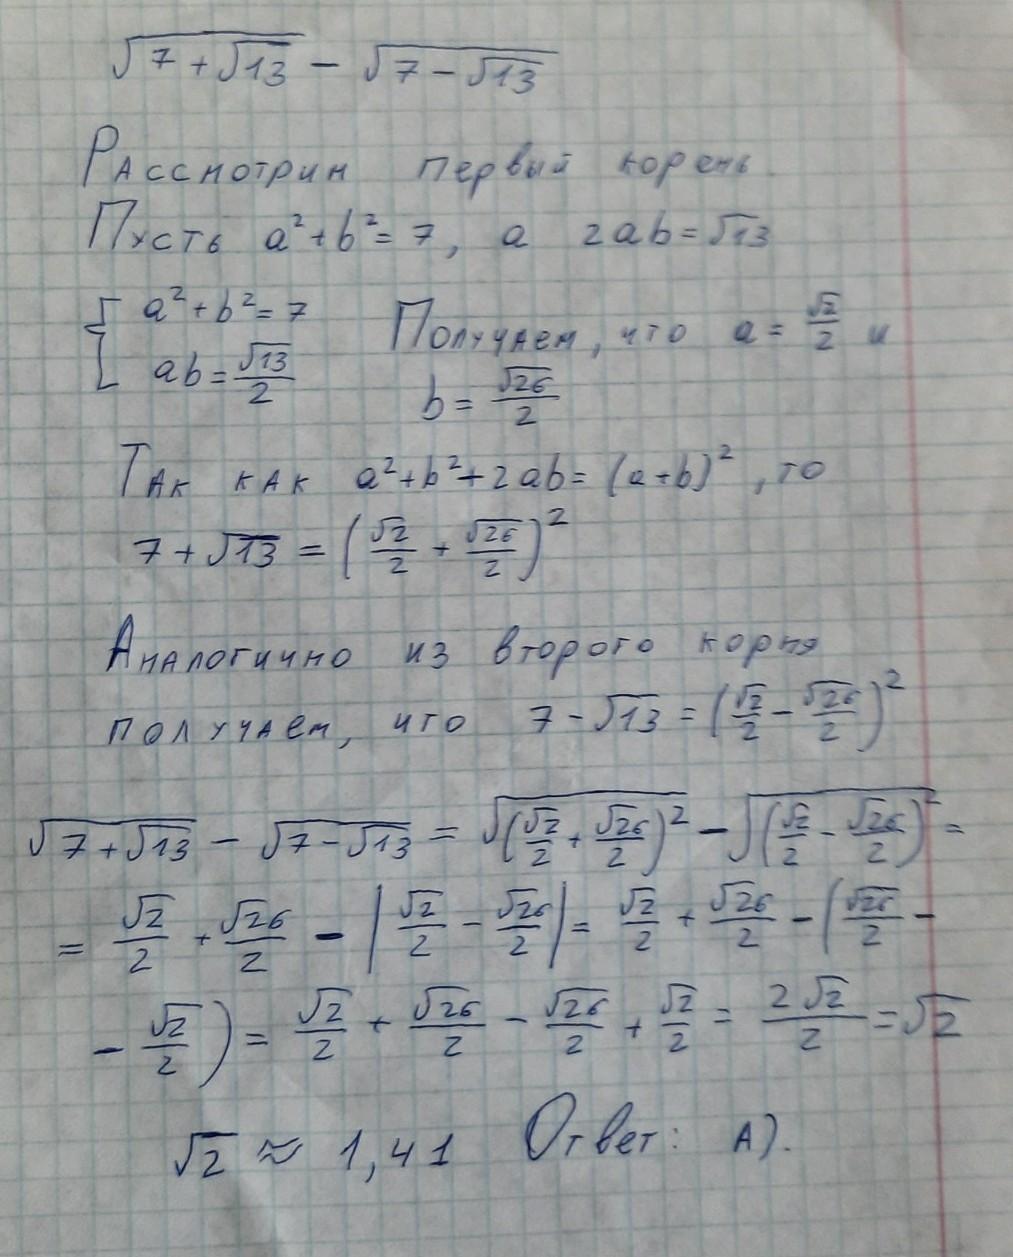 √(7 + √13) − √(7 − √13)
Рассмотрим первый корень.
Пусть a² + b² = 7, а 2ab = √13
{ a² + b² = 7
ab = √13/2
Получаем, что a = √2/2 и
b = √26/2
Так как a² + b² + 2ab = (a + b)², то
7 + √13 = (√2/2 + √26/2)²
Аналогично из второго корня
получаем, что 7 − √13 = (√2/2 − √26/2)²
√(7 + √13) − √(7 − √13) = √((√2/2 + √26/2)²) − √((√2/2 − √26/2)²) =
= √2/2 + √26/2 − |√2/2 − √26/2| = √2/2 + √26/2 − (√26/2 −
− √2/2) = √2/2 + √26/2 − √26/2 + √2/2 = 2√2/2 = √2
√2 ≈ 1,41 Ответ: А).